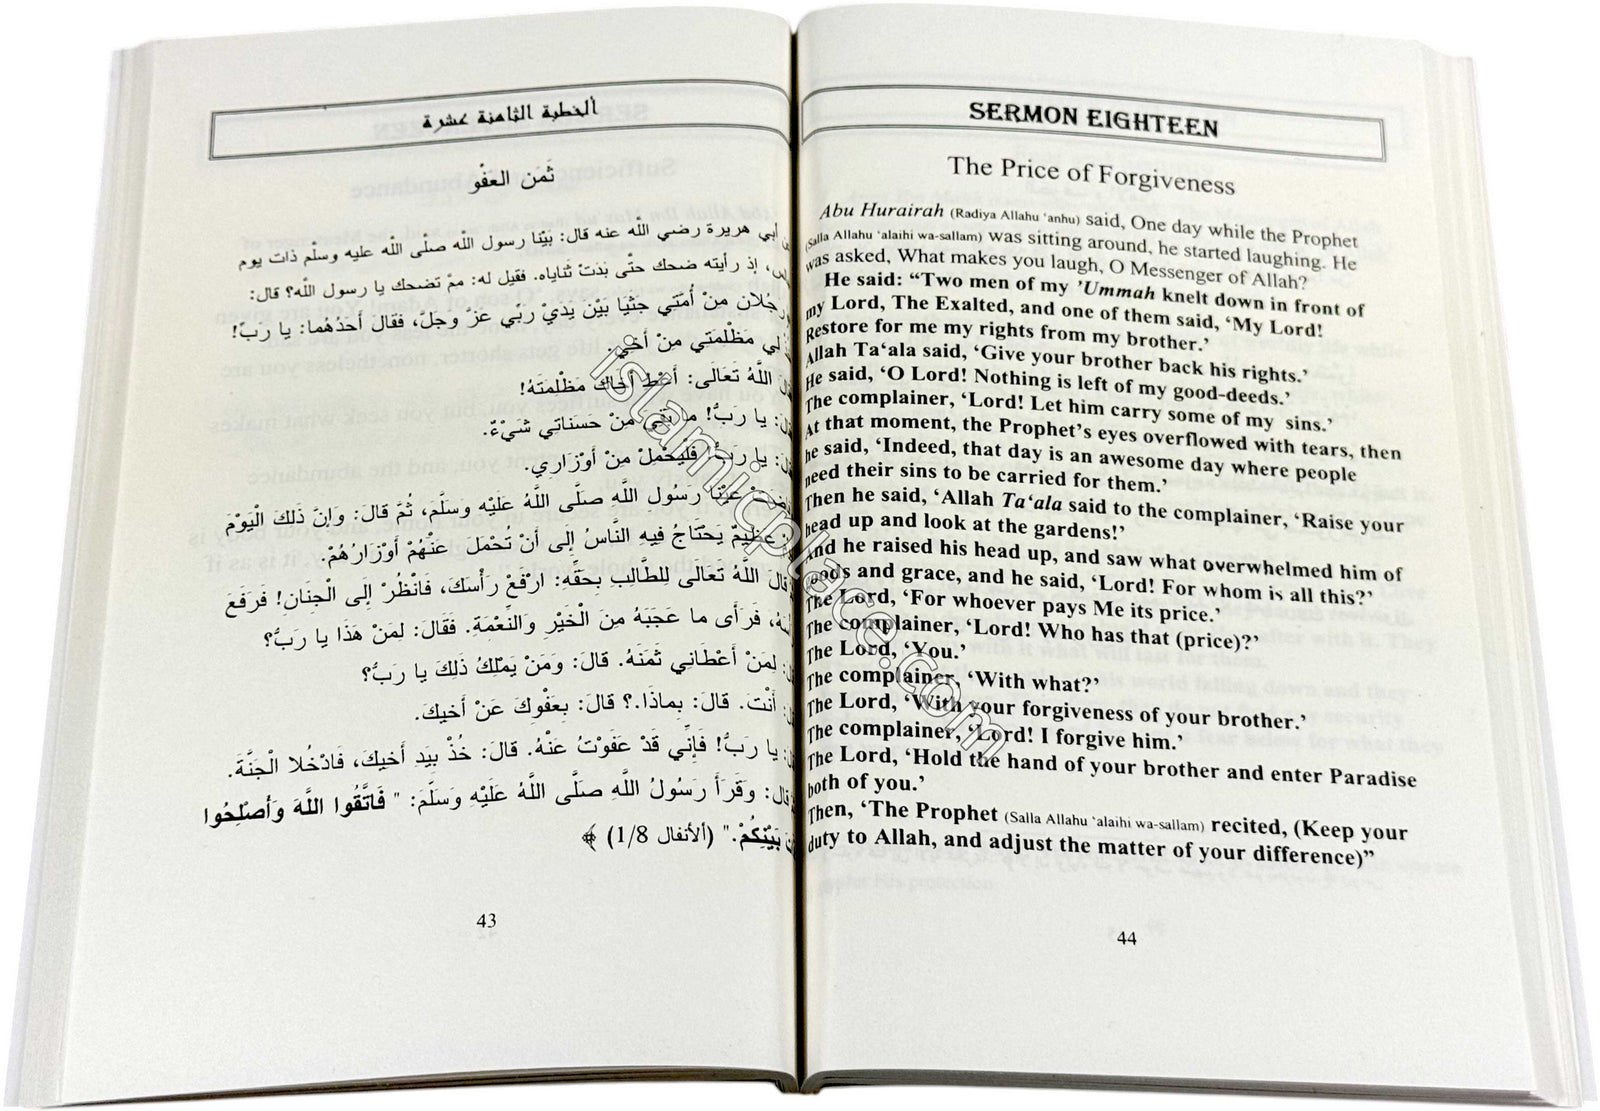 ألخطبة الثامنة عشرة
ثَمَن العَفْو
أبي هريرة رضي الله عنه قال: بَيْنا رسول الله صلّى الله عليه وسلّم ذات يوم
إذ رأيته ضحك حتّى بَدَتْ ثَناياه. فقيل له: ممْ تضحك يا رسول الله؟ قال:
مِنْ أُمّتي جَثَيا بَيْنَ يَدَيْ رَبّي عَزَّ وَجَلَّ، فَقالَ أحَدُهُما: يا رَبّ!
لي مَظْلِمَتي مِنْ أخي.
اللَّهُ تَعَالى: أعْطِ أخاكَ مَظْلِمَتَهُ!
يا رَبُّ! ما بَقِيَ مِنْ حَسَناتي شَيْءٌ.
يا رَبُّ فَلْيَحْمِلْ مِنْ أوْزَارِي.
عَيْنا رَسُول اللَّه صلَّى اللَّهُ عَلَيْه وَسَلَّمَ، ثُمَّ قالَ: وَإنَّ ذَلكَ الْيَوْمَ
عَظيمٌ يَحْتَاجُ فيه النَّاسُ إلى أنْ تُحْمَلَ عَنْهُمْ أوْزَارُهُمْ.
قالَ اللَّهُ تَعَالى لِلطَّالِب بِحَقِّهِ: ارْفعْ رَأْسكَ، فَانْظُرْ إلى الْجِنَان! فَرَفَعَ
فَرَأى ما عَجَبَهُ مِنَ الْخَيْرِ وَالنِّعْمَة. فَقَالَ: لمَنْ هَذَا يا رَبُّ؟
لمَنْ أعْطَاني ثَمَنَهُ. قالَ: وَمَنْ يَمْلكُ ذَلكَ يا رَبُّ؟
أنْتَ. قالَ: بِماذَا.؟ قالَ: بِعَفْوكَ عَنْ أخيكَ.
يا رَبُّ! فَإنِّي قَدْ عَفَوْتُ عَنْهُ. قالَ: خُذْ بِيَدِ أخيكَ، فَادْخُلا الْجَنَّةَ.
قالَ: وَقَرَأ رَسُولُ اللَّهِ صَلَّى اللَّهُ عَلَيْهِ وَسَلَّمَ: " فَاتَّقُوا اللَّهَ وَأصْلِحُوا
بَيْنِكُمْ." (ألأنفال 1/8)
43
SERMON EIGHTEEN
The Price of Forgiveness
Abu Hurairah (Radiya Allahu ‘anhu) said, One day while the Prophet
(Salla Allahu ‘alaihi wa-sallam) was sitting around, he started laughing. He
was asked, What makes you laugh, O Messenger of Allah?
He said: “Two men of my ’Ummah knelt down in front of
my Lord, The Exalted, and one of them said, ‘My Lord!
Restore for me my rights from my brother.’
Allah Ta‘ala said, ‘Give your brother back his rights.’
He said, ‘O Lord! Nothing is left of my good-deeds.’
The complainer, ‘Lord! Let him carry some of my sins.’
At that moment, the Prophet’s eyes overflowed with tears, then
he said, ‘Indeed, that day is an awesome day where people
need their sins to be carried for them.’
Then he said, ‘Allah Ta‘ala said to the complainer, ‘Raise your
head up and look at the gardens!’
And he raised his head up, and saw what overwhelmed him of
goods and grace, and he said, ‘Lord! For whom is all this?’
The Lord, ‘For whoever pays Me its price.’
The complainer, ‘Lord! Who has that (price)?’
The Lord, ‘You.’
The complainer, ‘With what?’
The Lord, ‘With your forgiveness of your brother.’
The complainer, ‘Lord! I forgive him.’
The Lord, ‘Hold the hand of your brother and enter Paradise
both of you.’
Then, ‘The Prophet (Salla Allahu ‘alaihi wa-sallam) recited, (Keep your
duty to Allah, and adjust the matter of your difference)”
44
islamicplace.com